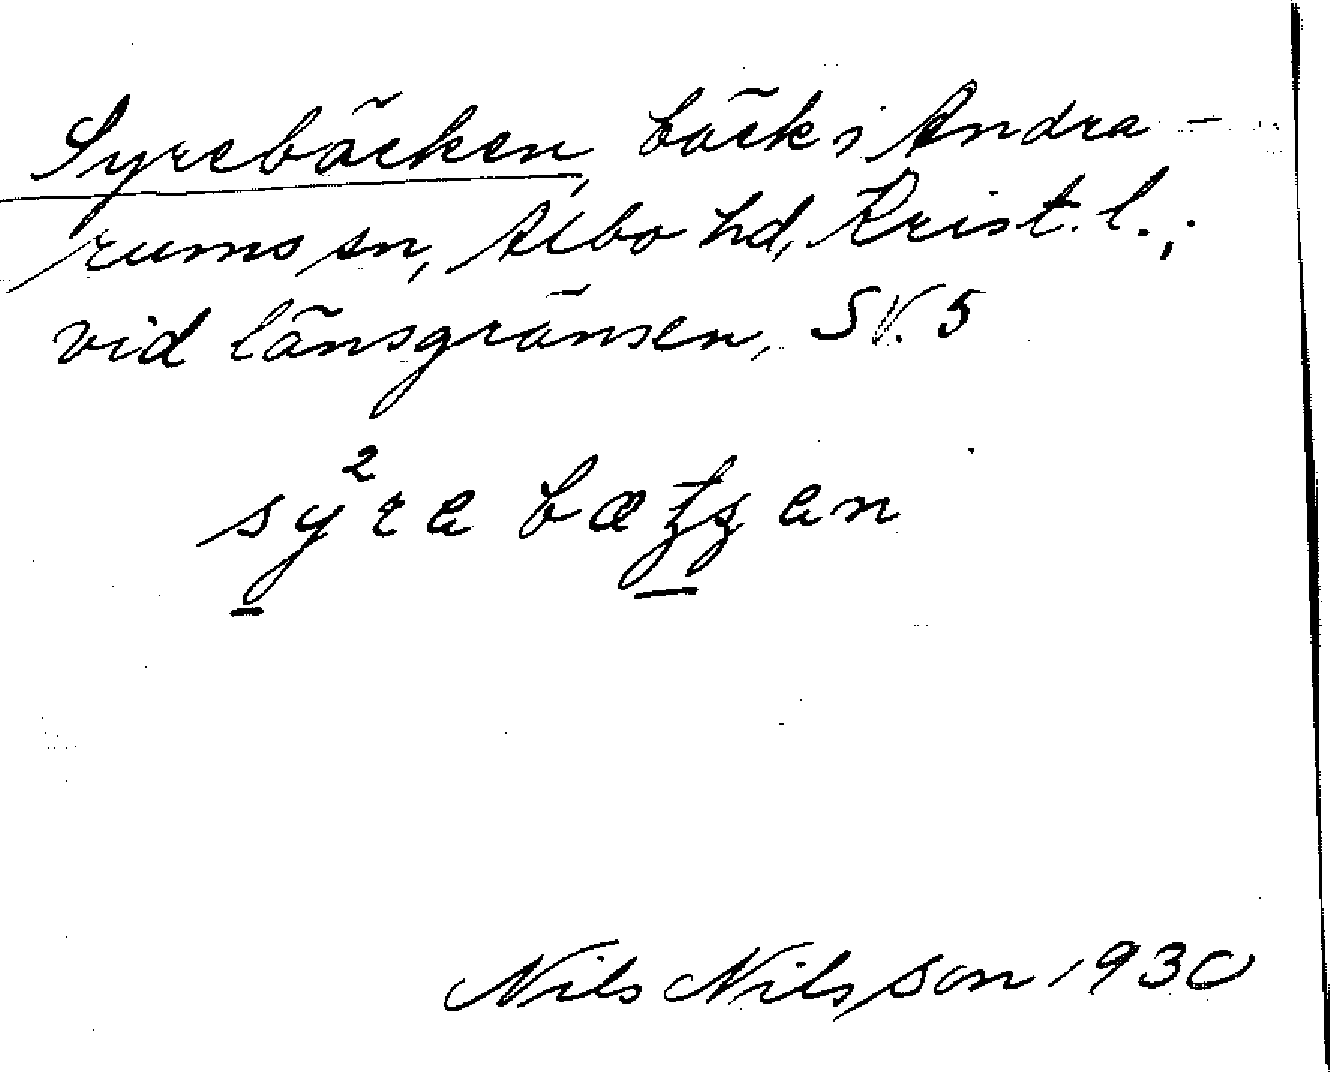 Syrebäcken, bäck i Andra-
rums sn, Albo hd, Krist. l.,
vid länsgränsen, SV. 5
sy²ra bætʂan
Nils Nilsson 1930